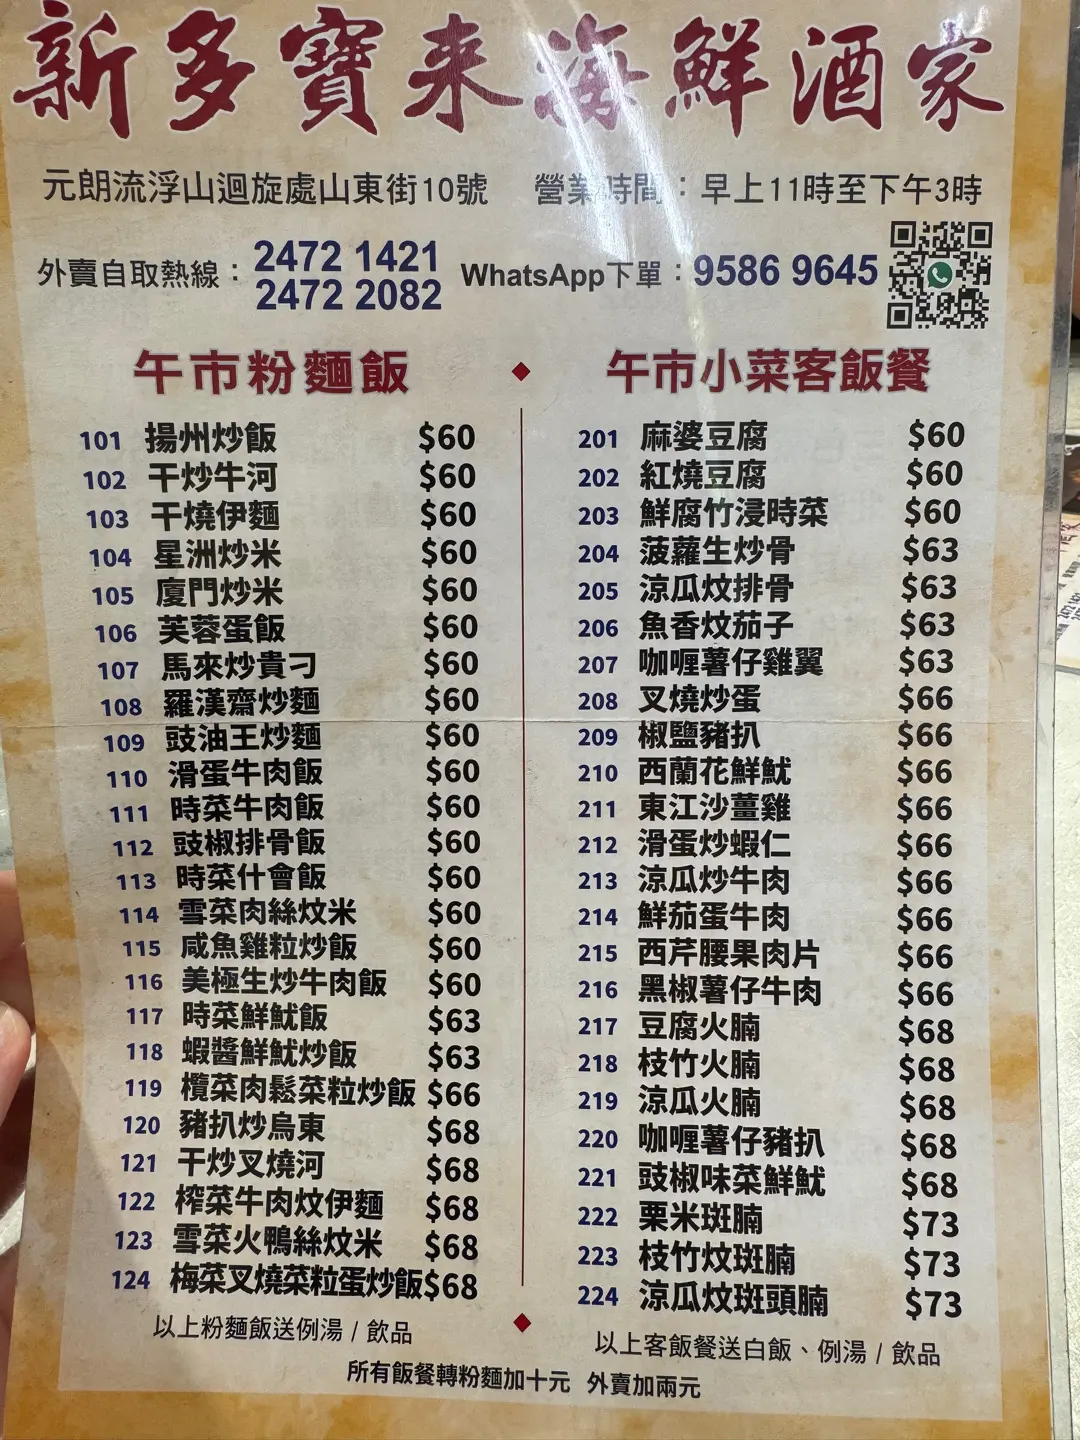 新多寶来海鮮酒家
元朗流浮山迴旋處山東街10號 營業時間：早上11時至下午3時
外賣自取熱線：2472 1421
2472 2082
WhatsApp下單：9586 9645
午市粉麵飯
101 揚州炒飯 $60
102 干炒牛河 $60
103 干燒伊麵 $60
104 星洲炒米 $60
105 廈門炒米 $60
106 芙蓉蛋飯 $60
107 馬來炒貴刁 $60
108 羅漢齋炒麵 $60
109 豉油王炒麵 $60
110 滑蛋牛肉飯 $60
111 時菜牛肉飯 $60
112 豉椒排骨飯 $60
113 時菜什會飯 $60
114 雪菜肉絲炆米 $60
115 咸魚雞粒炒飯 $60
116 美極生炒牛肉飯 $60
117 時菜鮮魷飯 $63
118 蝦醬鮮魷炒飯 $63
119 欖菜肉鬆菜粒炒飯 $66
120 豬扒炒烏東 $68
121 干炒叉燒河 $68
122 榨菜牛肉炆伊麵 $68
123 雪菜火鴨絲炆米 $68
124 梅菜叉燒菜粒蛋炒飯 $68
以上粉麵飯送例湯 / 飲品
午市小菜客飯餐
201 麻婆豆腐 $60
202 紅燒豆腐 $60
203 鮮腐竹浸時菜 $60
204 菠蘿生炒骨 $63
205 涼瓜炆排骨 $63
206 魚香炆茄子 $63
207 咖喱薯仔雞翼 $63
208 叉燒炒蛋 $66
209 椒鹽豬扒 $66
210 西蘭花鮮魷 $66
211 東江沙薑雞 $66
212 滑蛋炒蝦仁 $66
213 涼瓜炒牛肉 $66
214 鮮茄蛋牛肉 $66
215 西芹腰果肉片 $66
216 黑椒薯仔牛肉 $66
217 豆腐火腩 $68
218 枝竹火腩 $68
219 涼瓜火腩 $68
220 咖喱薯仔豬扒 $68
221 豉椒味菜鮮魷 $68
222 栗米斑腩 $73
223 枝竹炆斑腩 $73
224 涼瓜炆斑頭腩 $73
以上客飯餐送白飯、例湯 / 飲品
所有飯餐轉粉麵加十元 外賣加兩元